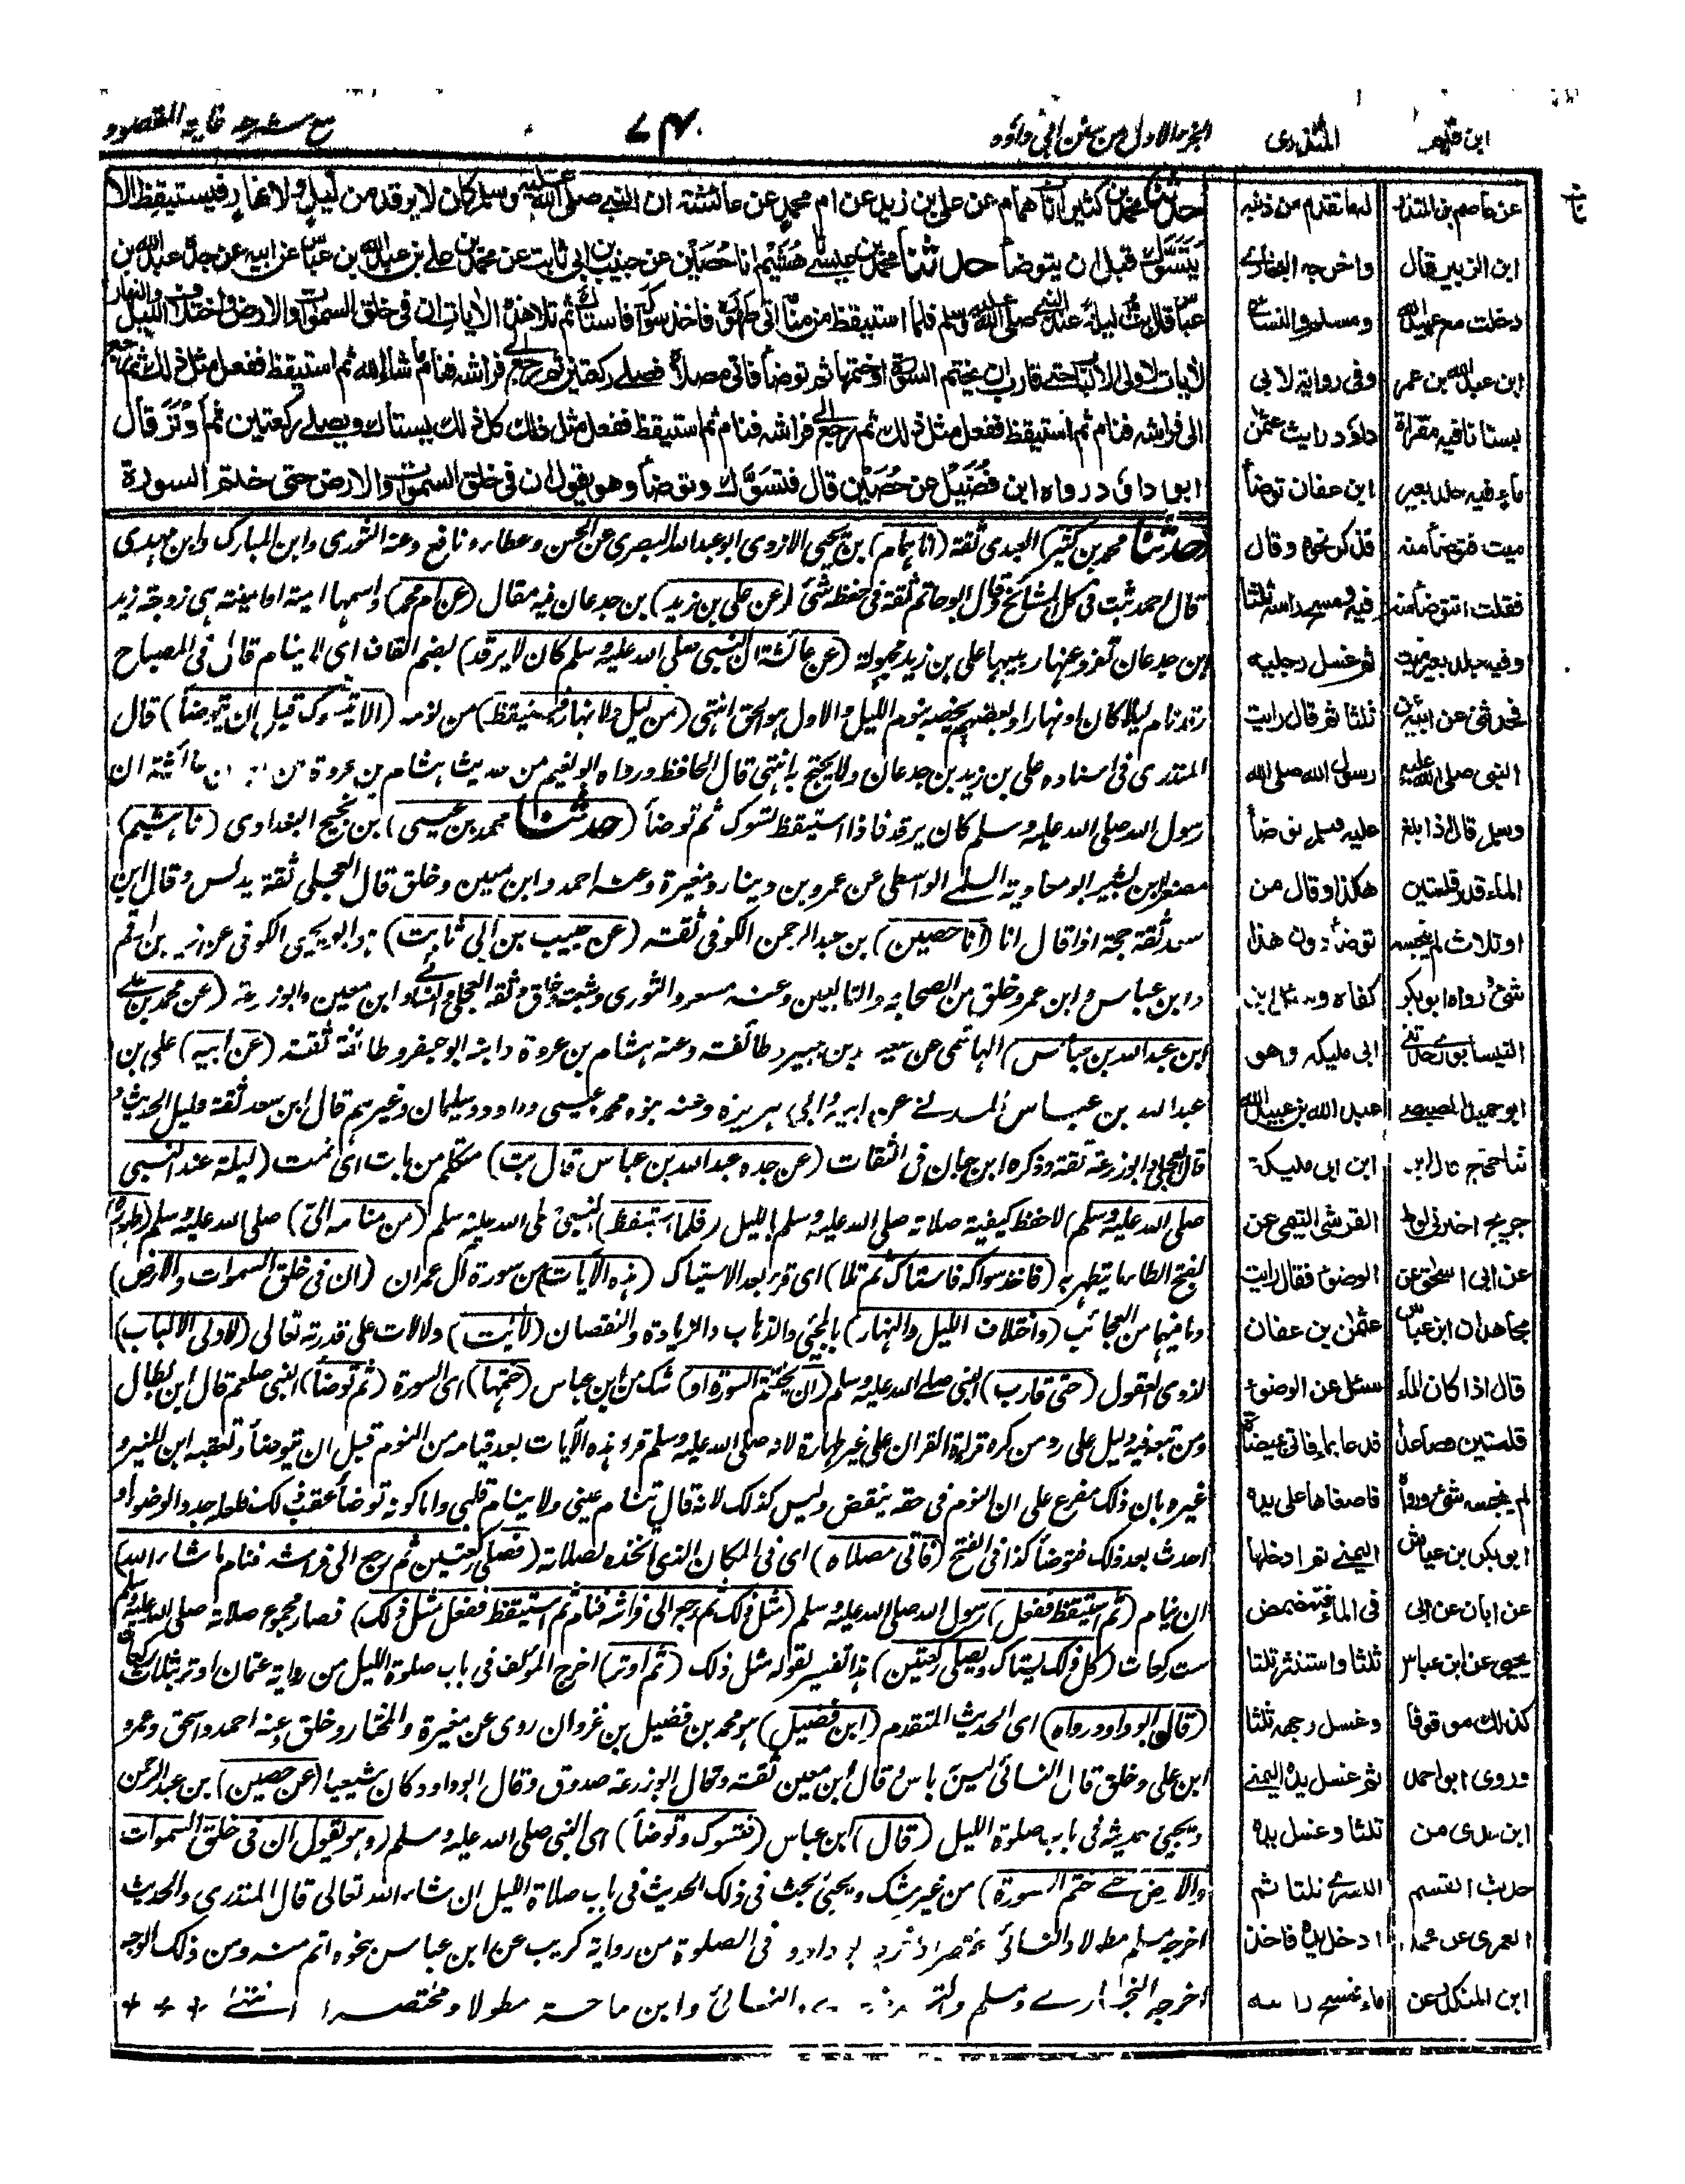 ابن قيم
المنذري
الجزء الاول من سنن ابي داؤد
٧٤
مع شرحه غاية المقصود
حدثنا محمد بن كثير انا همام عن علي بن زيد عن ام محمد عن عائشة ان النبي صلى الله عليه وسلم كان لا يرقد من ليل ولا نهار فيستيقظ الا
يتسوك قبل ان يتوضأ حدثنا محمد بن عيسى نا هشيم انا حصين عن حبيب بن ابي ثابت عن محمد بن علي بن عبد الله بن عباس عن ابيه عن جده عبد الله بن
عباس قال بت ليلة عند النبي صلى الله عليه وسلم فلما استيقظ من منامه اتى طهوره فاخذ سواكه فاستاك ثم تلا هذه الايات ان في خلق السموات والارض واختلاف الليل والنهار
لايات لاولي الالباب حتى قارب ان يختم السورة او ختمها ثم توضأ فاتى مصلاه فصلى ركعتين ثم رجع الى فراشه فنام ما شاء الله ثم استيقظ ففعل مثل ذلك ثم رجع
الى فراشه فنام ثم استيقظ ففعل مثل ذلك ثم رجع الى فراشه فنام ثم استيقظ ففعل مثل ذلك كل ذلك يستاك ويصلي ركعتين ثم اوتر قال
ابو داؤد رواه ابن فضيل عن حصين قال فتسوك وتوضأ وهو يقول ان في خلق السموات والارض حتى ختم السورة
(حدثنا محمد بن كثير) العبدي ثقة (انا همام) بن يحيى الازدي ابو عبد الله البصري عن الحسن وعطاء ونافع وعنه الثوري وابن المبارك وابن مهدي
قال احمد ثبت في كل المشائخ وقال ابو حاتم ثقة في حفظه شئ (عن علي بن زيد) بن جدعان فيه مقال (عن ام محمد) واسمها امية او امينة هي زوجة زيد
بن جدعان تفرد عنها ربيبها علي بن زيد مجهولة (عن عائشة ان النبي صلى الله عليه وسلم كان لا يرقد) بضم القاف اى لا ينام قال في المصباح
رقد نام ليلا كان او نهارا وبعضهم يخصه بنوم الليل والاول هو الحق انتهى (من ليل ولا نهار فيستيقظ) من نومه (الا يتسوك قبل ان يتوضأ) قال
المنذري في اسناده علي بن زيد بن جدعان ولا يحتج به انتهى قال الحافظ ورواه ابو نعيم من حديث هشام بن عروة عن عائشة ان
رسول الله صلى الله عليه وسلم كان يرقد فاذا استيقظ تسوك ثم توضأ (حدثنا محمد بن عيسى) بن نجيح البغدادي (نا هشيم)
بن بشير ابو معاوية السلمي الواسطي عن عمرو بن دينار ومغيرة وعنه احمد وابن معين وخلق قال العجلي ثقة يدلس وقال ابن
سعد ثقة حجة اذا قال انا (انا حصين) بن عبد الرحمن الكوفي ثقة (عن حبيب بن ابي ثابت) ابو يحيى الكوفي عن زيد بن ارقم
وابن عباس وابن عمر وخلق من الصحابة والتابعين وعنه مسعر والثوري وشعبة وخلق وثقه العجلي والنسائي وابن معين وابو زرعة (عن محمد بن علي
ابن عبد الله بن عباس) الهاشمي عن سعيد بن جبير وطائفة وعنه هشام بن عروة وابنه ابو جعفر وطائفة ثقة (عن ابيه) علي بن
عبد الله بن عباس المدني عن ابيه وابي هريرة وعنه بنوه محمد وعيسى وداود وسليمان وغيرهم قال ابن سعد ثقة قليل الحديث و
قال العجلي وابو زرعة ثقة وذكره ابن حبان في الثقات (عن جده عبد الله بن عباس قال بت) متكلم من بات اى نمت (ليلة عند النبي
صلى الله عليه وسلم) لاحفظ كيفية صلاته صلى الله عليه وسلم بالليل (فلما استيقظ) النبي صلى الله عليه وسلم (من منامه اتى) صلى الله عليه وسلم (طهوره)
بفتح الطاء ما يتطهر به (فاخذ سواكه فاستاك ثم تلا) اى قرء بعد الاستياك (هذه الآيات) من سورة آل عمران (ان في خلق السموات والارض)
وما فيها من العجائب (واختلاف الليل والنهار) بالمجئ والذهاب والزيادة والنقصان (لآيت) دلالات على قدرته تعالى (لاولى الالباب)
لذوي العقول (حتى قارب) النبي صلى الله عليه وسلم (ان يختم السورة او) شك من ابن عباس (ختمها) اى السورة (ثم توضأ) النبي صلعم قال ابن بطال
ومن تبعه فيه دليل على رد من كره قراءة القران على غير طهارة لانه صلى الله عليه وسلم قرء هذه الآيات بعد قيامه من النوم قبل ان يتوضأ وتعقبه ابن المنير و
غيره بان ذلك مفرع على ان النوم في حقه ينقض وليس كذلك لانه قال تنام عيني ولا ينام قلبي واما كونه توضأ عقب ذلك فلعله جدد الوضوء او
احدث بعد ذلك فتوضأ كذا في الفتح (فاتى مصلاه) اى في المكان الذى اتخذه لصلاته (فصلى ركعتين ثم رجع الى فراشه فنام ما شاء الله)
ان ينام (ثم استيقظ ففعل) رسول الله صلى الله عليه وسلم (مثل ذلك ثم رجع الى فراشه فنام ثم استيقظ ففعل مثل ذلك) فصار مجموع صلاته صلى الله عليه وسلم
ست ركعات (كل ذلك يستاك ويصلي ركعتين) هذا تفسير لقوله مثل ذلك (ثم اوتر) اخرج المؤلف في باب صلوة الليل من رواية عثمان اوتر بثلاث ركعات
(قال ابو داود ورواه) اى الحديث المتقدم (ابن فضيل) هو محمد بن فضيل بن غزوان روى عن مغيرة والمختار وخلق وعنه احمد واسحق وعمرو
ابن علي وخلق قال النسائى ليس به باس وقال ابن معين ثقة وقال ابو زرعة صدوق وقال ابو داود كان شيعيا (عن حصين) بن عبد الرحمن
ويجئ حديثه في باب صلوة الليل (قال) ابن عباس (فتسوك وتوضأ) اى النبي صلى الله عليه وسلم (وهو يقول ان في خلق السموات
والارض حتى ختم السورة) من غير شك ويجئ بحث في ذلك الحديث في باب صلاة الليل ان شاء الله تعالى قال المنذري والحديث
اخرجه مسلم مطولا والنسائى مختصرا ابو داود في الصلوة من رواية كريب عن ابن عباس بنحوه اتم منه ومن ذلك الوجه
اخرجه البخاري ومسلم والنسائى وابن ماجة مطولا ومختصرا انتهى + + +
له ما تقدم من ذنبه
واخرجه البخاري
ومسلم والنسائي
وفي رواية لابي
داؤد رايت عثمن
ابن عفان توضأ
فذكر نحوه وقال
فيه ومسح راسه ثلثا
ثم غسل رجليه
ثلثا ثم قال رايت
رسول الله صلى الله
عليه وسلم توضأ
هكذا وقال من
توضأ دون هذا
كفاه
ابي مليكه وهو
عبد الله بن عبيد الله
ابن ابي مليكة
القرشي التيمي عن
الوضوء فقال رايت
عثمن بن عفان
سئل عن الوضوء
فدعا بماء فاتي بميضاة
فاصغاها على يده
اليمنى ثم ادخلها
في الماء فتمضمض
ثلثا واستنثر ثلثا
وغسل وجهه ثلثا
ثم غسل يده اليمنى
ثلثا وغسل يده
اليسرى ثلثا ثم
ادخل يده فاخذ
ماء فمسح راسه
عن عاصم بن المنذر
ابن الزبير قال
دخلت مع عبيد الله
ابن عبد الله بن عمر
بستانا فيه مقراة
ماء فيه جلد بعير
ميت فتوضأ منه
فقلت اتتوضأ منه
وفيه جلد بعير ميت
فحدثني عن ابيه عن
النبي صلى الله عليه
وسلم قال اذا بلغ
الماء قدر قلتين
او ثلاث لم ينجسه
شئ رواه ابو بكر
النيسابوري حدثني
ابو حميد المصيصي
ثنا حجاج قال ابن
جريج اخبرني لوط
عن ابي اسحق عن
مجاهد ان ابن عباس
قال اذا كان الماء
قلتين فصاعدا
لم ينجسه شئ ورواه
ابو بكر بن عياش
عن ابان عن ابي
يحيى عن ابن عباس
كذلك موقوفا
وروى ابو احمد
ابن عدي من
حديث القسم
العمري عن محمد
ابن المنكدر عن